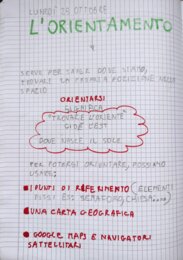 LUNEDÌ 28 OTTOBRE
L'ORIENTAMENTO
SERVE PER SAPER DOVE SIAMO,
TROVARE LA PROPRIA POSIZIONE NELLO
SPAZIO
ORIENTARSI
SIGNIFICA
TROVARE L'ORIENTE
CIOÈ L'EST
DOVE NASCE IL SOLE
PER POTERSI ORIENTARE, POSSIAMO
USARE:
I PUNTI DI RIFERIMENTO (ELEMENTI
FISSI ES: SEMAFORO, CHIESA....)
UNA CARTA GEOGRAFICA
GOOGLE MAPS E NAVIGATORI
SATTELLITARI